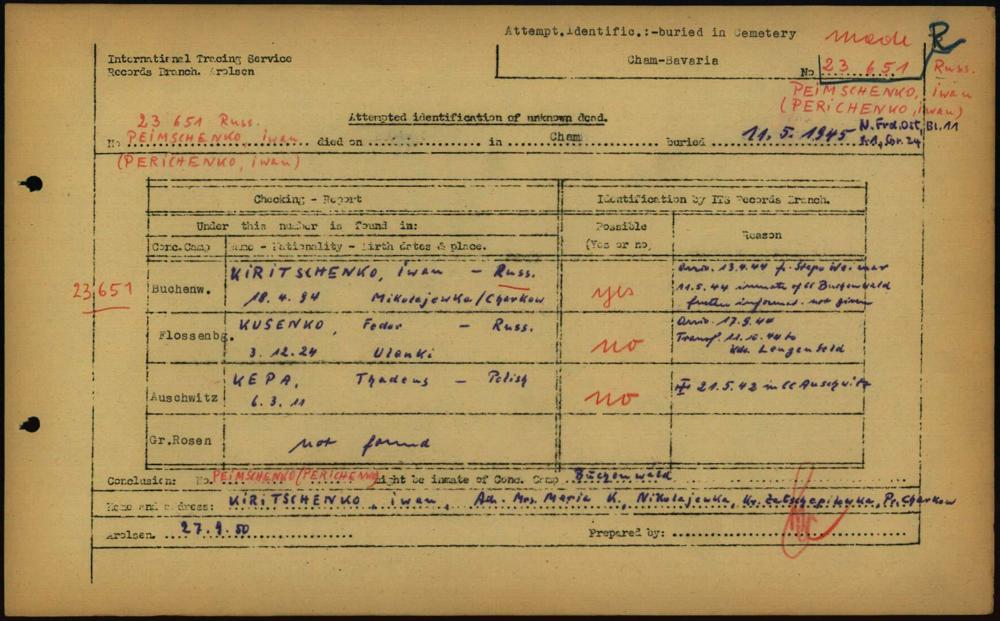 Attempt.Identific.:-buried in Cemetery
made R
International Tracing Service
Records Branch. Arolsen
Cham-Bavaria
No 23 651 Russ.
PEIMSCHENKO, iwan
(PERICHENKO, iwan)
23 651 Russ.
Attempted identification of unknown dead.
N. Frd.Ost, Bl.11
No PEIMSCHENKO, iwan died on in Cham buried 11.5.1945
(PERICHENKO, iwan)
Checking - Report
Identification by ITS Records Branch.
Under this number is found in:
Possible
(Yes or no)
Reason
Conc.Camp Name - Nationality - Birth dates & place.
23 651
Buchenw.
KIRITSCHENKO, iwan - Russ.
18.4.94 Mikolajewka/Charkow
yes
Arriv. 13.4.44 fr. Stapo Weimar
11.5.44 inmate of CC Buchenwald
further informat. not given
Flossenbg.
KUSENKO, Fedor - Russ.
3.12.24 Ulanki
no
Arriv. 17.9.44
Transf. 11.10.44 to
Kdo. Lengenfeld
Auschwitz
KEPA, Thadeus - Polish
6.3.11
no
21.5.42 in CC Auschwitz
Gr.Rosen
not found
Conclusion: No. PEIMSCHENKO/PERICHENKO might be inmate of Conc. Camp Buchenwald
Name and address: KIRITSCHENKO, iwan, Adr. Mrs. Maria K., Nikolajewka, Kr. Pr. Charkow
Arolsen. 27.9.50
Prepared by: